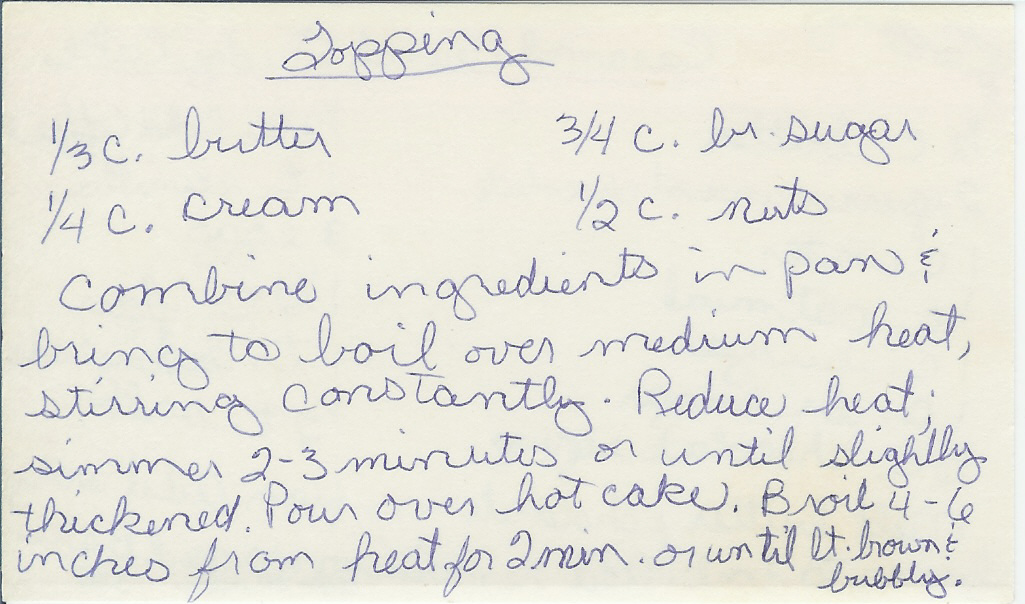 Topping
1/3 c. butter 3/4 c. br. sugar
1/4 c. cream 1/2 c. nuts
Combine ingredients in pan &
bring to boil over medium heat,
stirring constantly. Reduce heat;
simmer 2-3 minutes or until slightly
thickened. Pour over hot cake. Broil 4-6
inches from heat for 2 min. or until lt. brown &
bubbly.